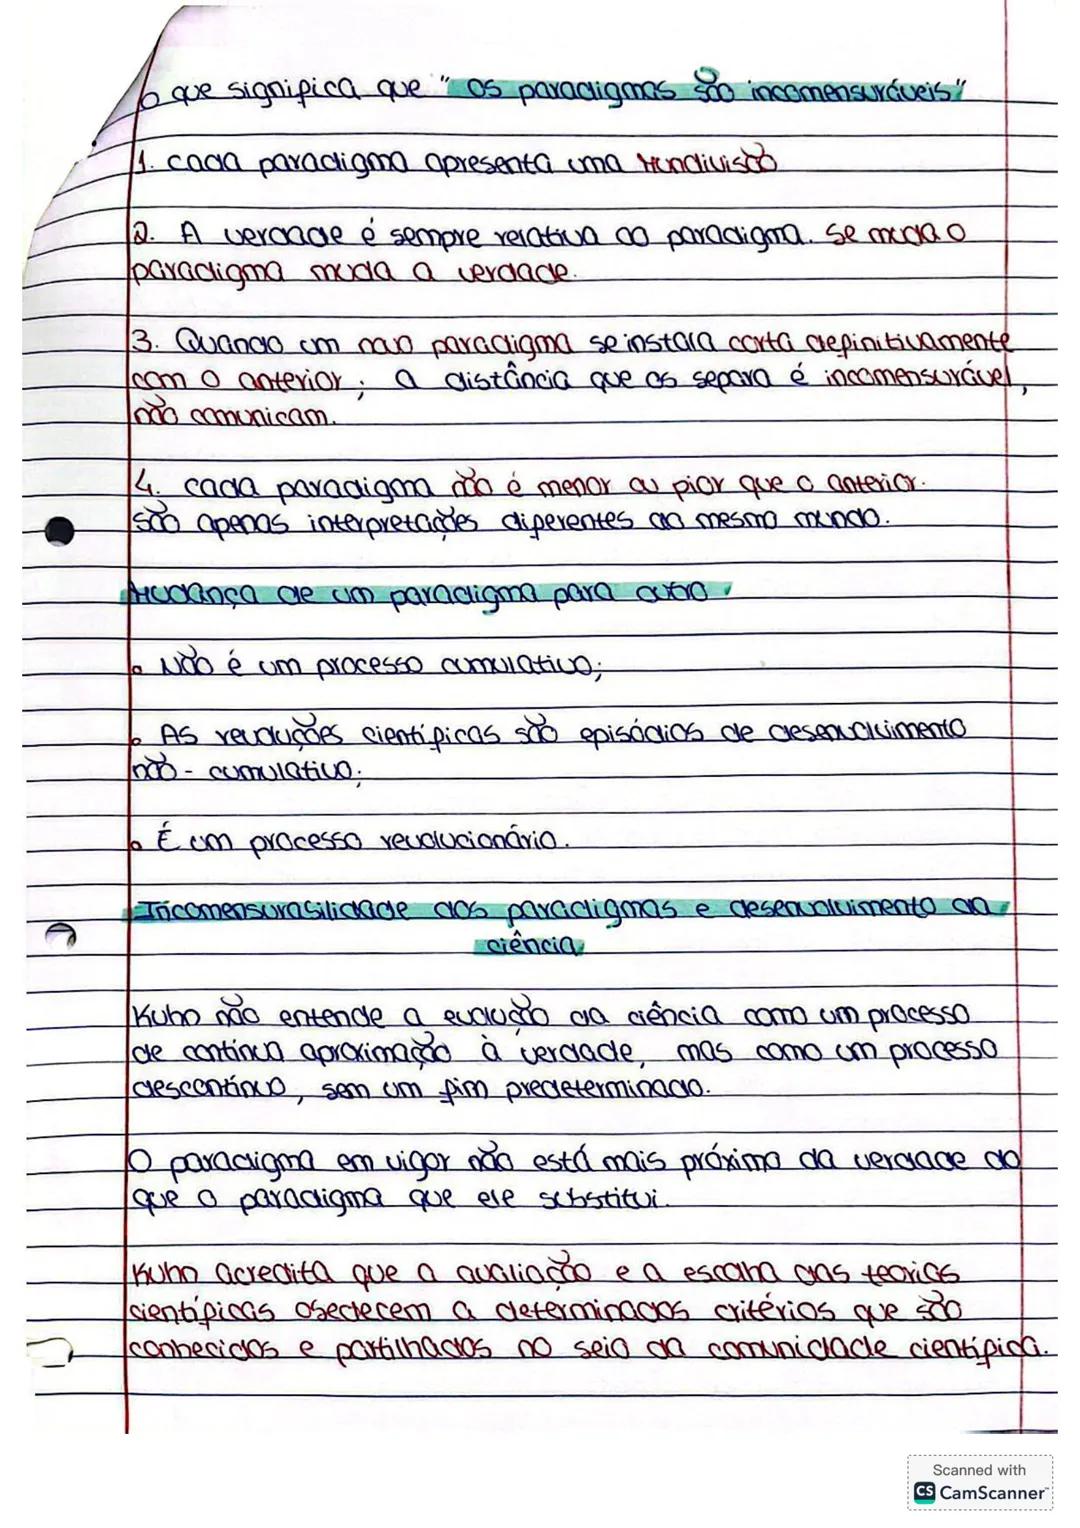 O que significa que "Os paradigmas são incomensuráveis"
1. cada paradigma apresenta uma Mundivisão
2. A verdade é sempre relativa ao paradigma. Se muda o
paradigma muda a verdade.
3. Quando um novo paradigma se instala corta definitivamente
com o anterior; a distância que os separa é incomensurável,
não comunicam.
4. cada paradigma não é menor ou pior que o anterior.
São apenas interpretações diferentes do mesmo mundo.
Mudança de um paradigma para outro
• Não é um processo cumulativo;
• As revoluções científicas são episódios de desenvolvimento
não - cumulativo;
• É um processo revolucionário.
Incomensurabilidade dos paradigmas e desenvolvimento da
ciência
Kuhn não entende a evolução da ciência como um processo
de contínua aproximação à verdade, mas como um processo
descontínuo, sem um fim predeterminado.
O paradigma em vigor não está mais próximo da verdade do
que o paradigma que ele substitui.
Kuhn acredita que a avaliação e a escolha das teorias
científicas obedecem a determinados critérios que são
conhecidos e partilhados no seio da comunidade científica.
Scanned with
CS CamScanner